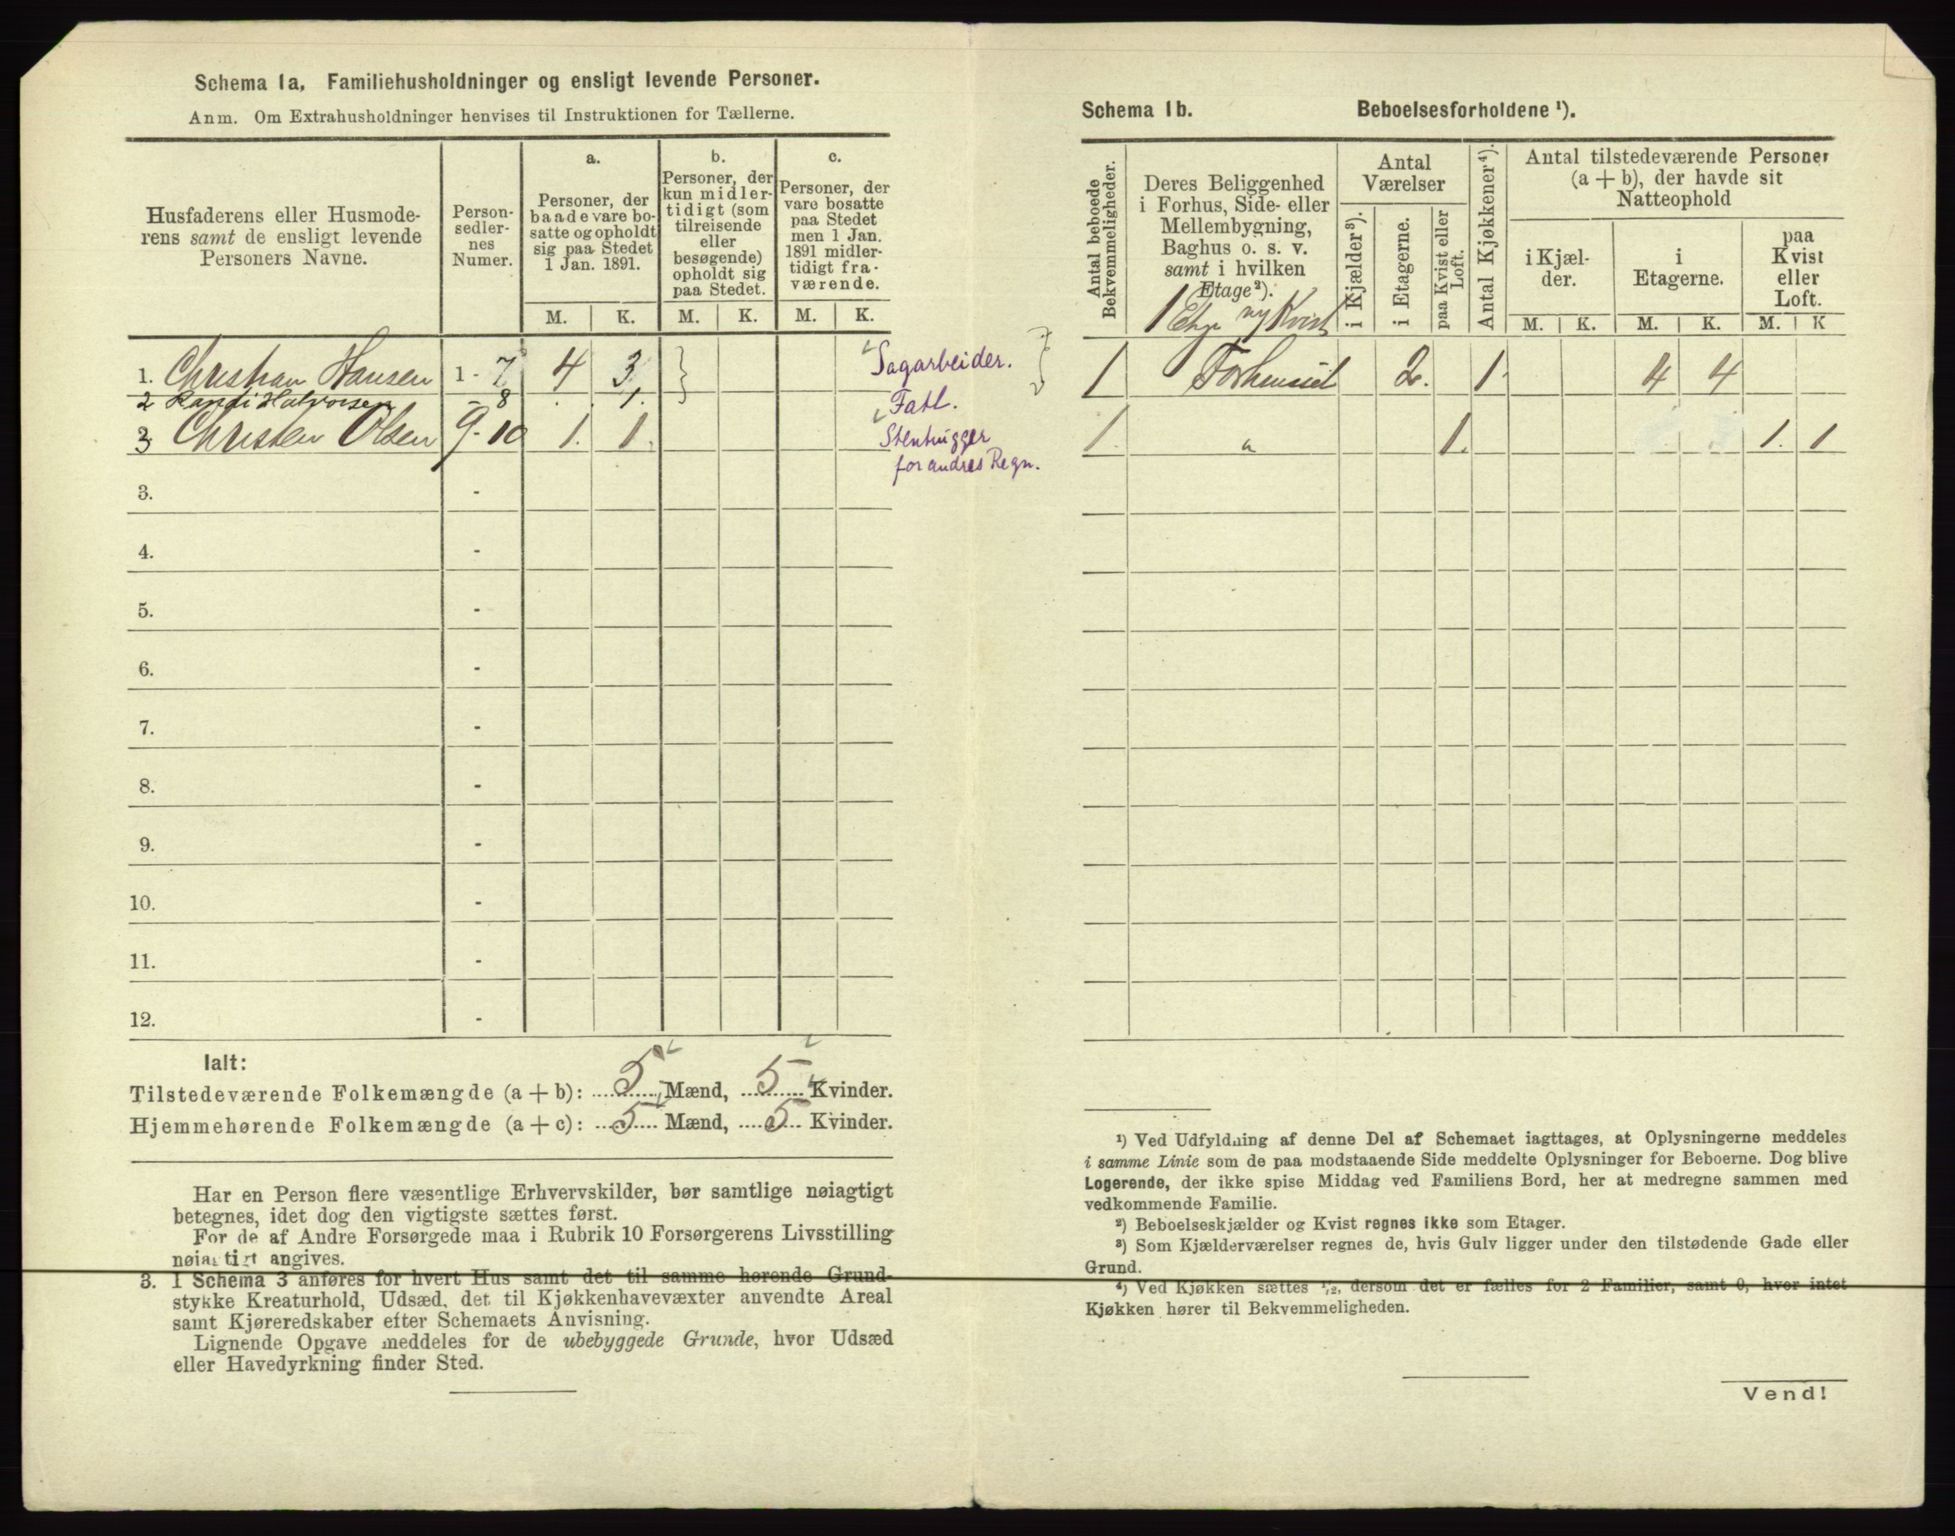 Schema 1a, Familiehusholdninger og ensligt levende Personer.
Anm. Om Extrahusholdninger henvises til Instruktionen for Tællerne.
Husfaderens eller Husmoderens samt de ensligt levende Personers Navne.
Personsedlernes Numer.
a.
Personer, der baade vare bosatte og opholdt sig paa Stedet 1 Jan. 1891.
b.
Personer, der kun midlertidigt (som tilreisende eller besøgende) opholdt sig paa Stedet.
c.
Personer, der vare bosatte paa Stedet men 1 Jan. 1891 midlertidigt fraværende.
M. K. M. K. M. K.
1. Christian Hansen 1 - 7 4 3 Sagarbeider.
2 Randi Halvorsen - 8 . 1. Fatl.
3 Christen Olsen 9 - 10 1. 1. Stenhugger
for andres Regn.
3. -
4. -
5. -
6. -
7. -
8. -
9. -
10. -
11. -
12. -
Ialt:
Tilstedeværende Folkemængde (a + b): 5 Mænd, 5 Kvinder.
Hjemmehørende Folkemængde (a + c): 5 Mænd, 5 Kvinder.
Har en Person flere væsentlige Erhvervskilder, bør samtlige nøiagtigt
betegnes, idet dog den vigtigste sættes først.
For de af Andre Forsørgede maa i Rubrik 10 Forsørgerens Livsstilling
nøiagtigt angives.
3. I Schema 3 anføres for hvert Hus samt det til samme hørende Grund-
stykke Kreaturhold, Udsæd, det til Kjøkkenhavevæxter anvendte Areal
samt Kjøreredskaber efter Schemaets Anvisning.
Lignende Opgave meddeles for de ubebyggede Grunde, hvor Udsæd
eller Havedyrkning finder Sted.
Schema 1b. Beboelsesforholdene ¹).
Antal beboede Bekvemmeligheder.
Deres Beliggenhed i Forhus, Side- eller Mellembygning, Baghus o. s. v. samt i hvilken Etage²).
1 Etge og Kvist
Antal Værelser
i Kjælder³).
i Etagerne.
paa Kvist eller Loft.
Antal Kjøkkener⁴).
Antal tilstedeværende Personer (a + b), der havde sit Natteophold
i Kjælder.
i Etagerne.
paa Kvist eller Loft.
M. K. M. K. M. K
1 2. 1. 4 4
1. " 1. 1. 1
¹) Ved Udfyldning af denne Del af Schemaet iagttages, at Oplysningerne meddeles
i samme Linie som de paa modstaaende Side meddelte Oplysninger for Beboerne. Dog blive
Logerende, der ikke spise Middag ved Familiens Bord, her at medregne sammen med
vedkommende Familie.
²) Beboelseskjælder og Kvist regnes ikke som Etager.
³) Som Kjælderværelser regnes de, hvis Gulv ligger under den tilstødende Gade eller
Grund.
⁴) Ved Kjøkken sættes ½, dersom det er fælles for 2 Familier, samt 0, hvor intet
Kjøkken hører til Bekvemmeligheden.
Vend!